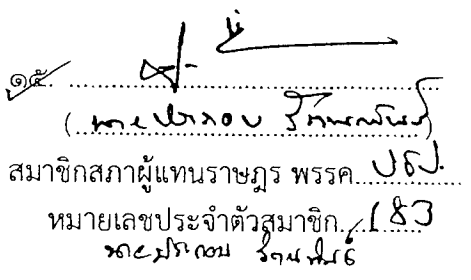 ๑๕.
(นายประกอบ รัตนพันธ์)
สมาชิกสภาผู้แทนราษฎร พรรค ปชป.
หมายเลขประจำตัวสมาชิก 183
นายประกอบ รัตนพันธ์